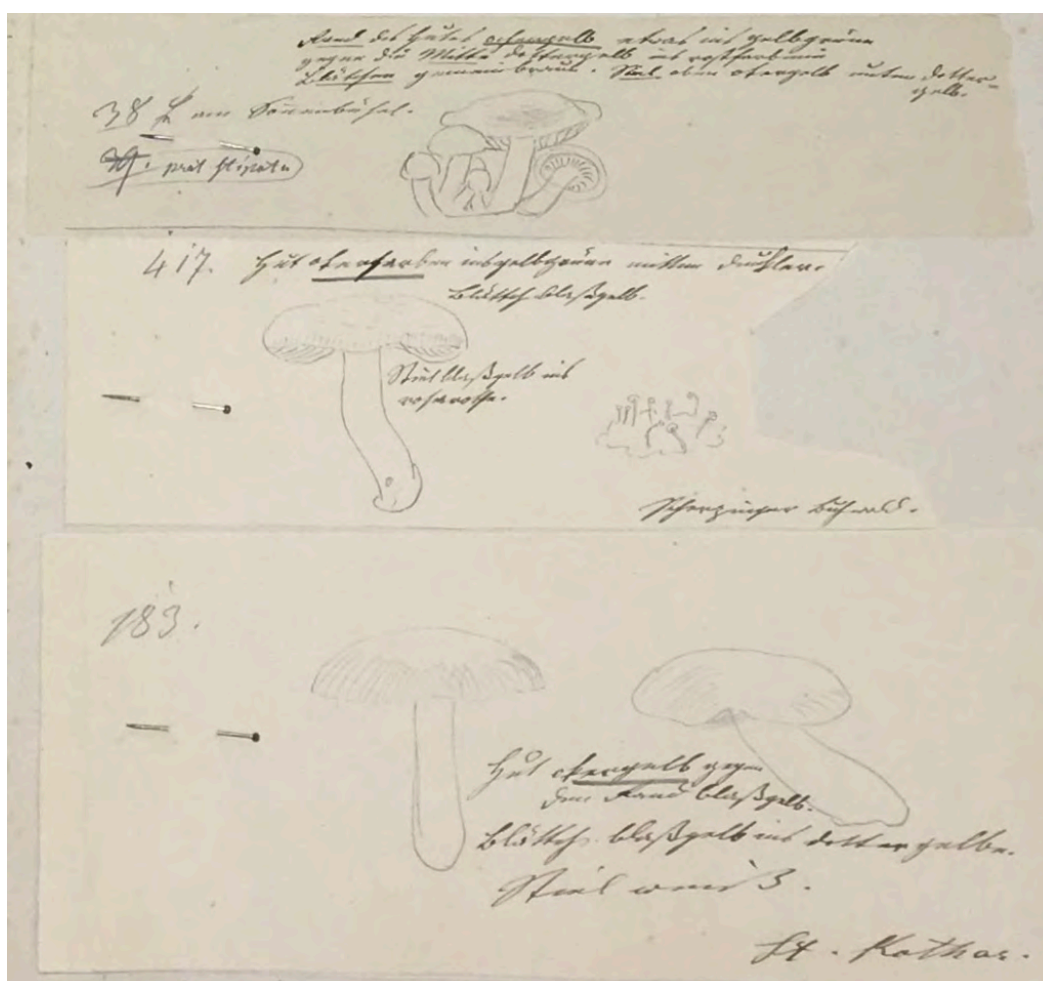 Rand des Hutes ochergelb etwas ins gelbgrüne
gegen die Mitte dottergelb ins rostfarbene
Blättchen gemein braun. Stiel oben okergelb unten dotter-
gelb.
38 am Sonnenbühel.
417. Hut okerfarben ins gelbgrüne mitten dunkler.
Blättch blaßgelb.
Stiel blaßgelb ins
rosarothe.
Scherzinger Buchwald.
183.
Hut okergelb gegen
den Rand blaßgelb.
Blättch. blaßgelb ins dottergelbe.
Stiel weiß.
St. Kathar.